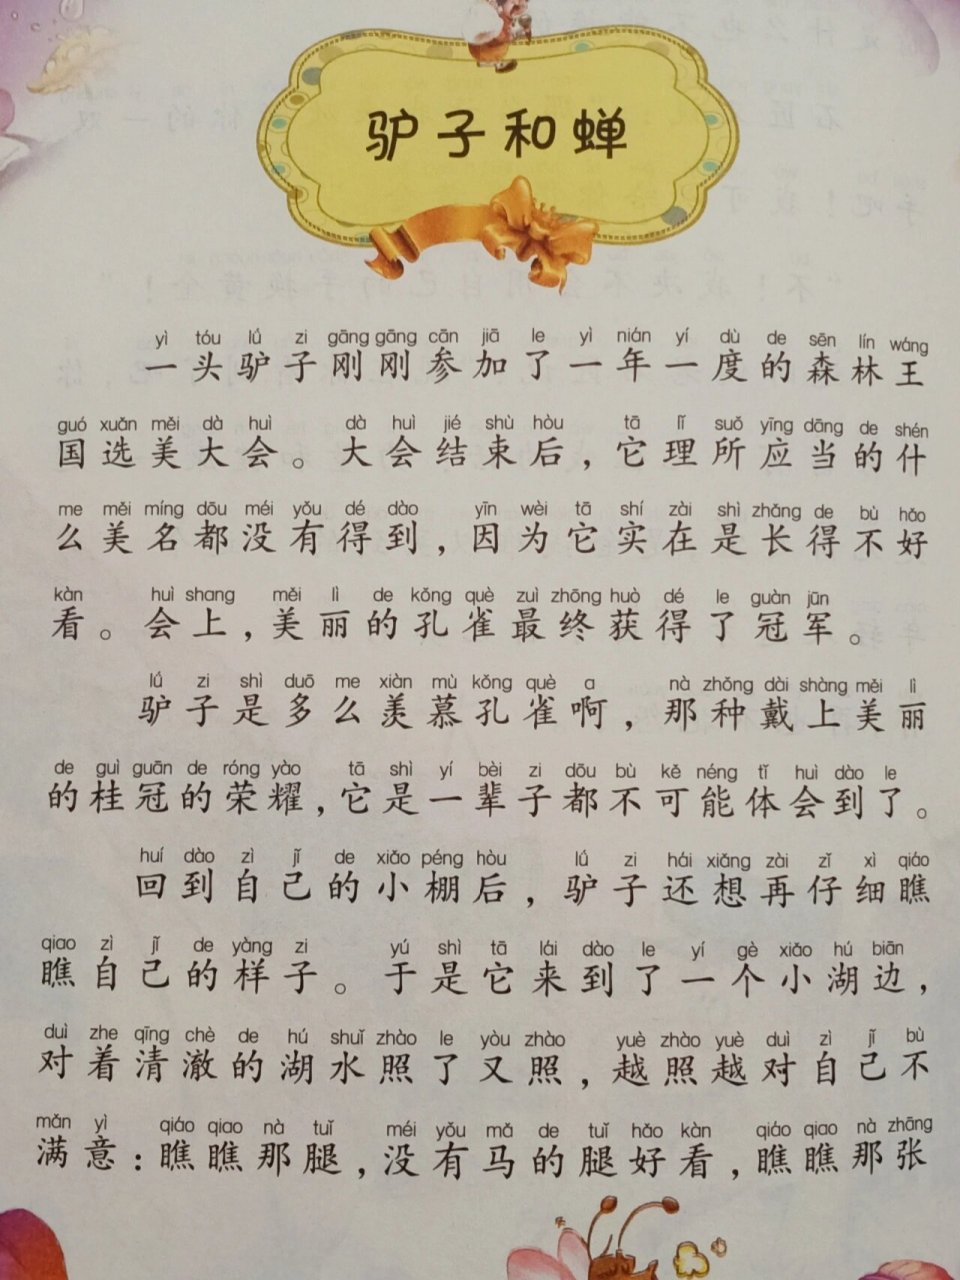 驴子和蝉
yì tóu lú zi gāng gāng cān jiā le yì nián yí dù de sēn lín wáng
一头驴子刚刚参加了一年一度的森林王
guó xuǎn měi dà huì dà huì jié shù hòu tā lǐ suǒ yīng dāng de shén
国选美大会。大会结束后，它理所应当的什
me měi míng dōu méi yǒu dé dào yīn wèi tā shí zài shì zhǎng de bù hǎo
么美名都没有得到，因为它实在是长得不好
kàn huì shang měi lì de kǒng què zuì zhōng huò dé le guàn jūn
看。会上，美丽的孔雀最终获得了冠军。
lú zi shì duō me xiàn mù kǒng què a nà zhǒng dài shàng měi lì
驴子是多么羡慕孔雀啊，那种戴上美丽
de guì guān de róng yào tā shì yí bèi zi dōu bù kě néng tǐ huì dào le
的桂冠的荣耀，它是一辈子都不可能体会到了。
huí dào zì jǐ de xiǎo péng hòu lú zi hái xiǎng zài zǐ xì qiáo
回到自己的小棚后，驴子还想再仔细瞧
qiao zì jǐ de yàng zi yú shì tā lái dào le yí gè xiǎo hú biān
瞧自己的样子。于是它来到了一个小湖边，
duì zhe qīng chè de hú shuǐ zhào le yòu zhào yuè zhào yuè duì zì jǐ bù
对着清澈的湖水照了又照，越照越对自己不
mǎn yì qiáo qiao nà tuǐ méi yǒu mǎ de tuǐ hǎo kàn qiáo qiao nà zhāng
满意：瞧瞧那腿，没有马的腿好看，瞧瞧那张